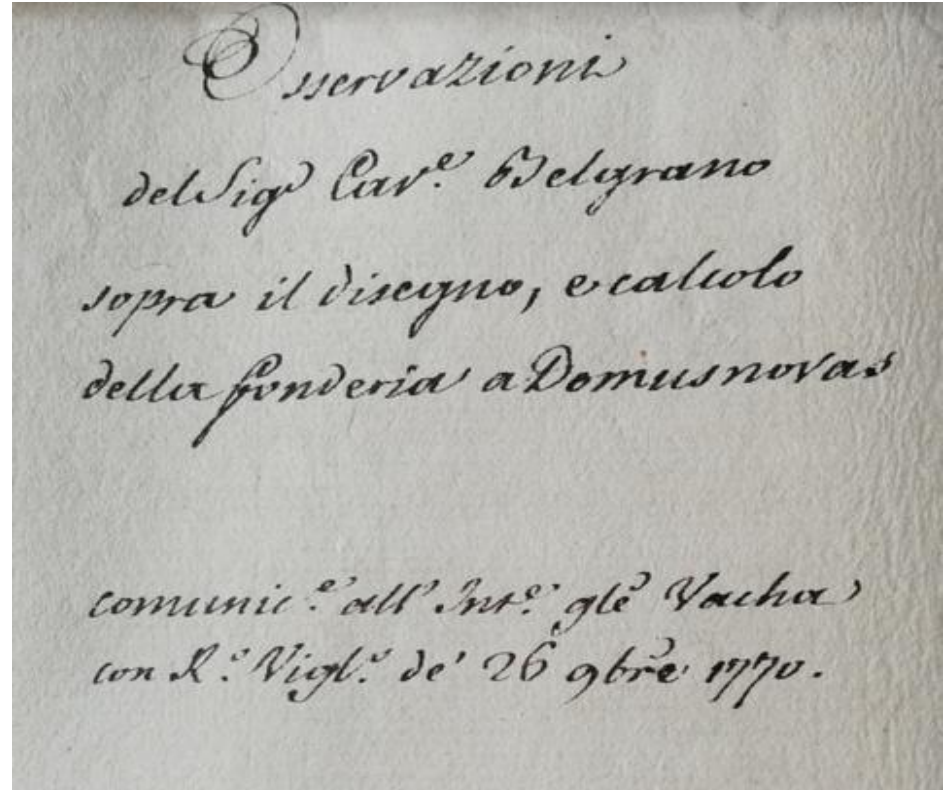 Osservazioni
del Sigr Cav.e Belgrano
sopra il disegno, e calcolo
della fonderia a Domusnovas
comunic.e all' Int.e gle Vacha
con R.o Vigl.o de' 26 9bre 1770.